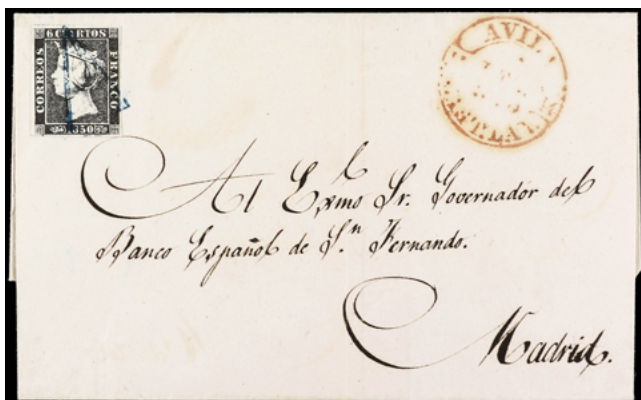 6 CUARTOS
CORREOS
FRANCO
1850
AVIL
CAST. LA V.
Al Exmo Sr. Governador del
Banco Español de Sn. Fernando.
Madrid.